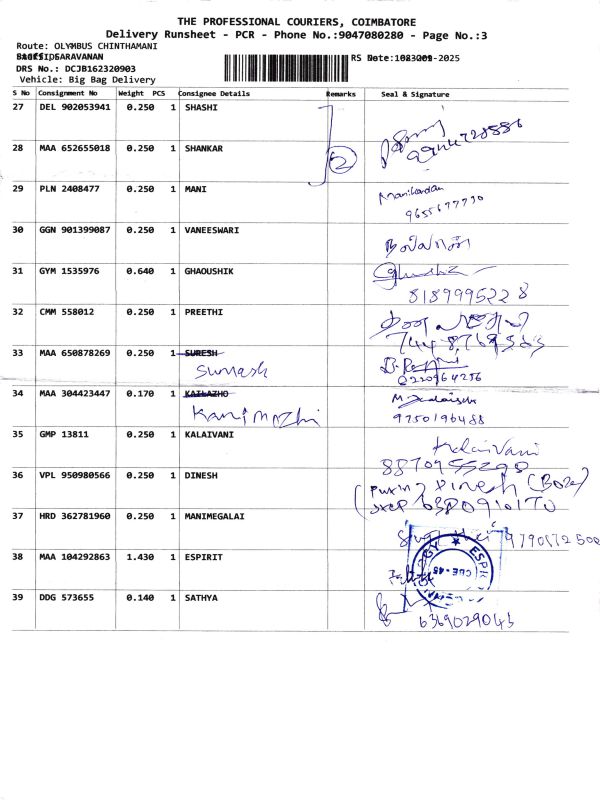 THE PROFESSIONAL COURIERS, COIMBATORE
Delivery Runsheet - PCR - Phone No.:9047080280 - Page No.:3
Route: OLYMBUS CHINTHAMANI
SARAVANAN RS Date: -2025
DRS No.: DCJB162320903
Vehicle: Big Bag Delivery
S No Consignment No Weight PCS Consignee Details Remarks Seal & Signature
27 DEL 902053941 0.250 1 SHASHI
28 MAA 652655018 0.250 1 SHANKAR 2
29 PLN 2408477 0.250 1 MANI Manikandan
9655677790
30 GGN 901399087 0.250 1 VANEESWARI
31 GYM 1535976 0.640 1 GHAOUSHIK
8189995228
32 CMM 558012 0.250 1 PREETHI
33 MAA 650878269 0.250 1 SURESH
Sumash
34 MAA 304423447 0.170 1 KAILAZHO
Kanimozhi 9750196488
35 GMP 13811 0.250 1 KALAIVANI Kalaivani
36 VPL 950980566 0.250 1 DINESH Dinesh
37 HRD 362781960 0.250 1 MANIMEGALAI
38 MAA 104292863 1.430 1 ESPIRIT
CBE - 45
39 DDG 573655 0.140 1 SATHYA
6369029045